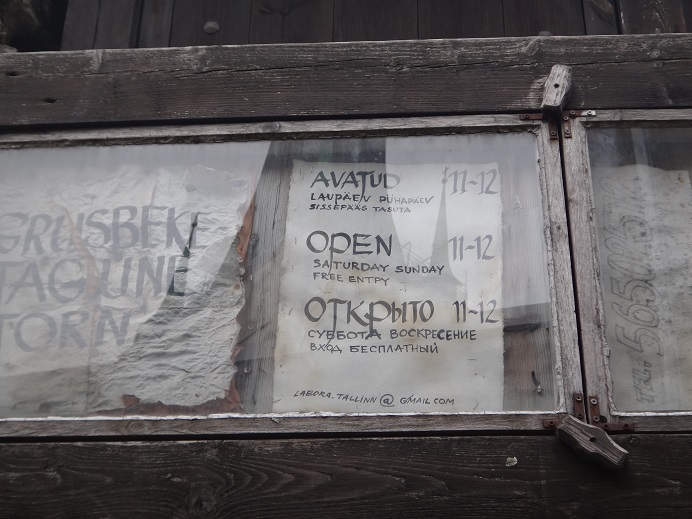 GRUSBEKE
TAGUNE
TORN
AVATUD 11-12
LAUPÄEV PÜHAPÄEV
SISSEPÄÄS TASUTA
OPEN 11-12
SATURDAY SUNDAY
FREE ENTRY
ОТКРЫТО 11-12
СУББОТА ВОСКРЕСЕНИЕ
ВХОД БЕСПЛАТНЫЙ
LABORA.TALLINN@GMAIL.COM